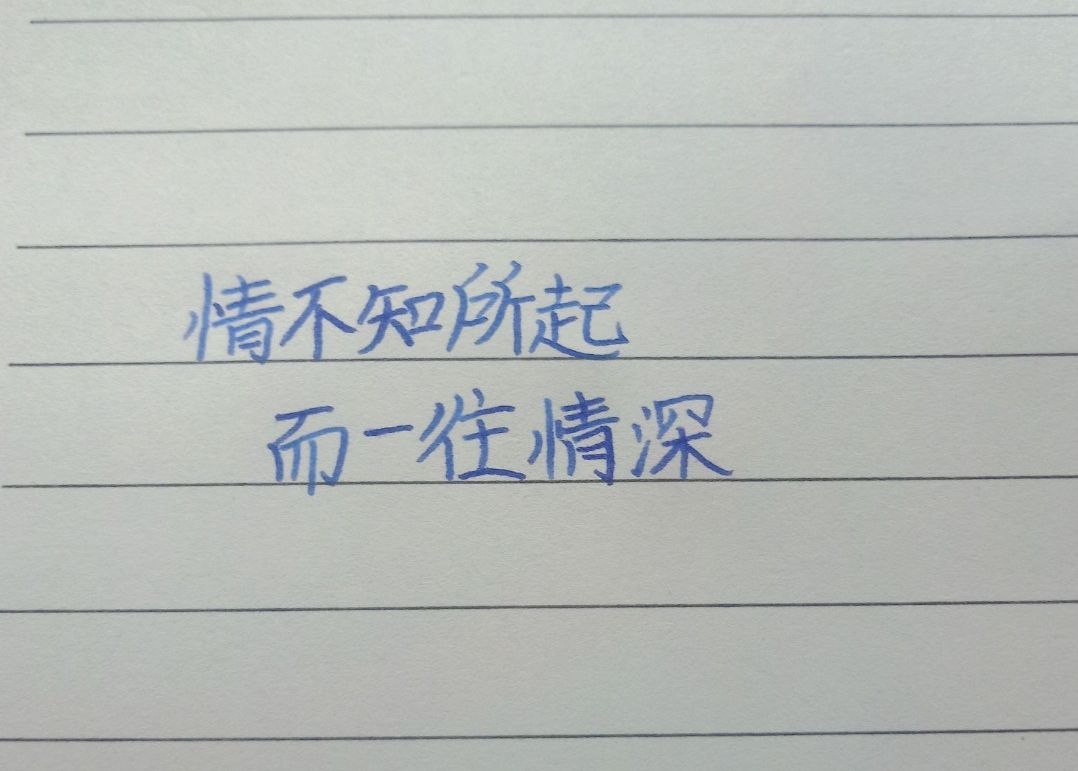 情不知所起
而一往情深